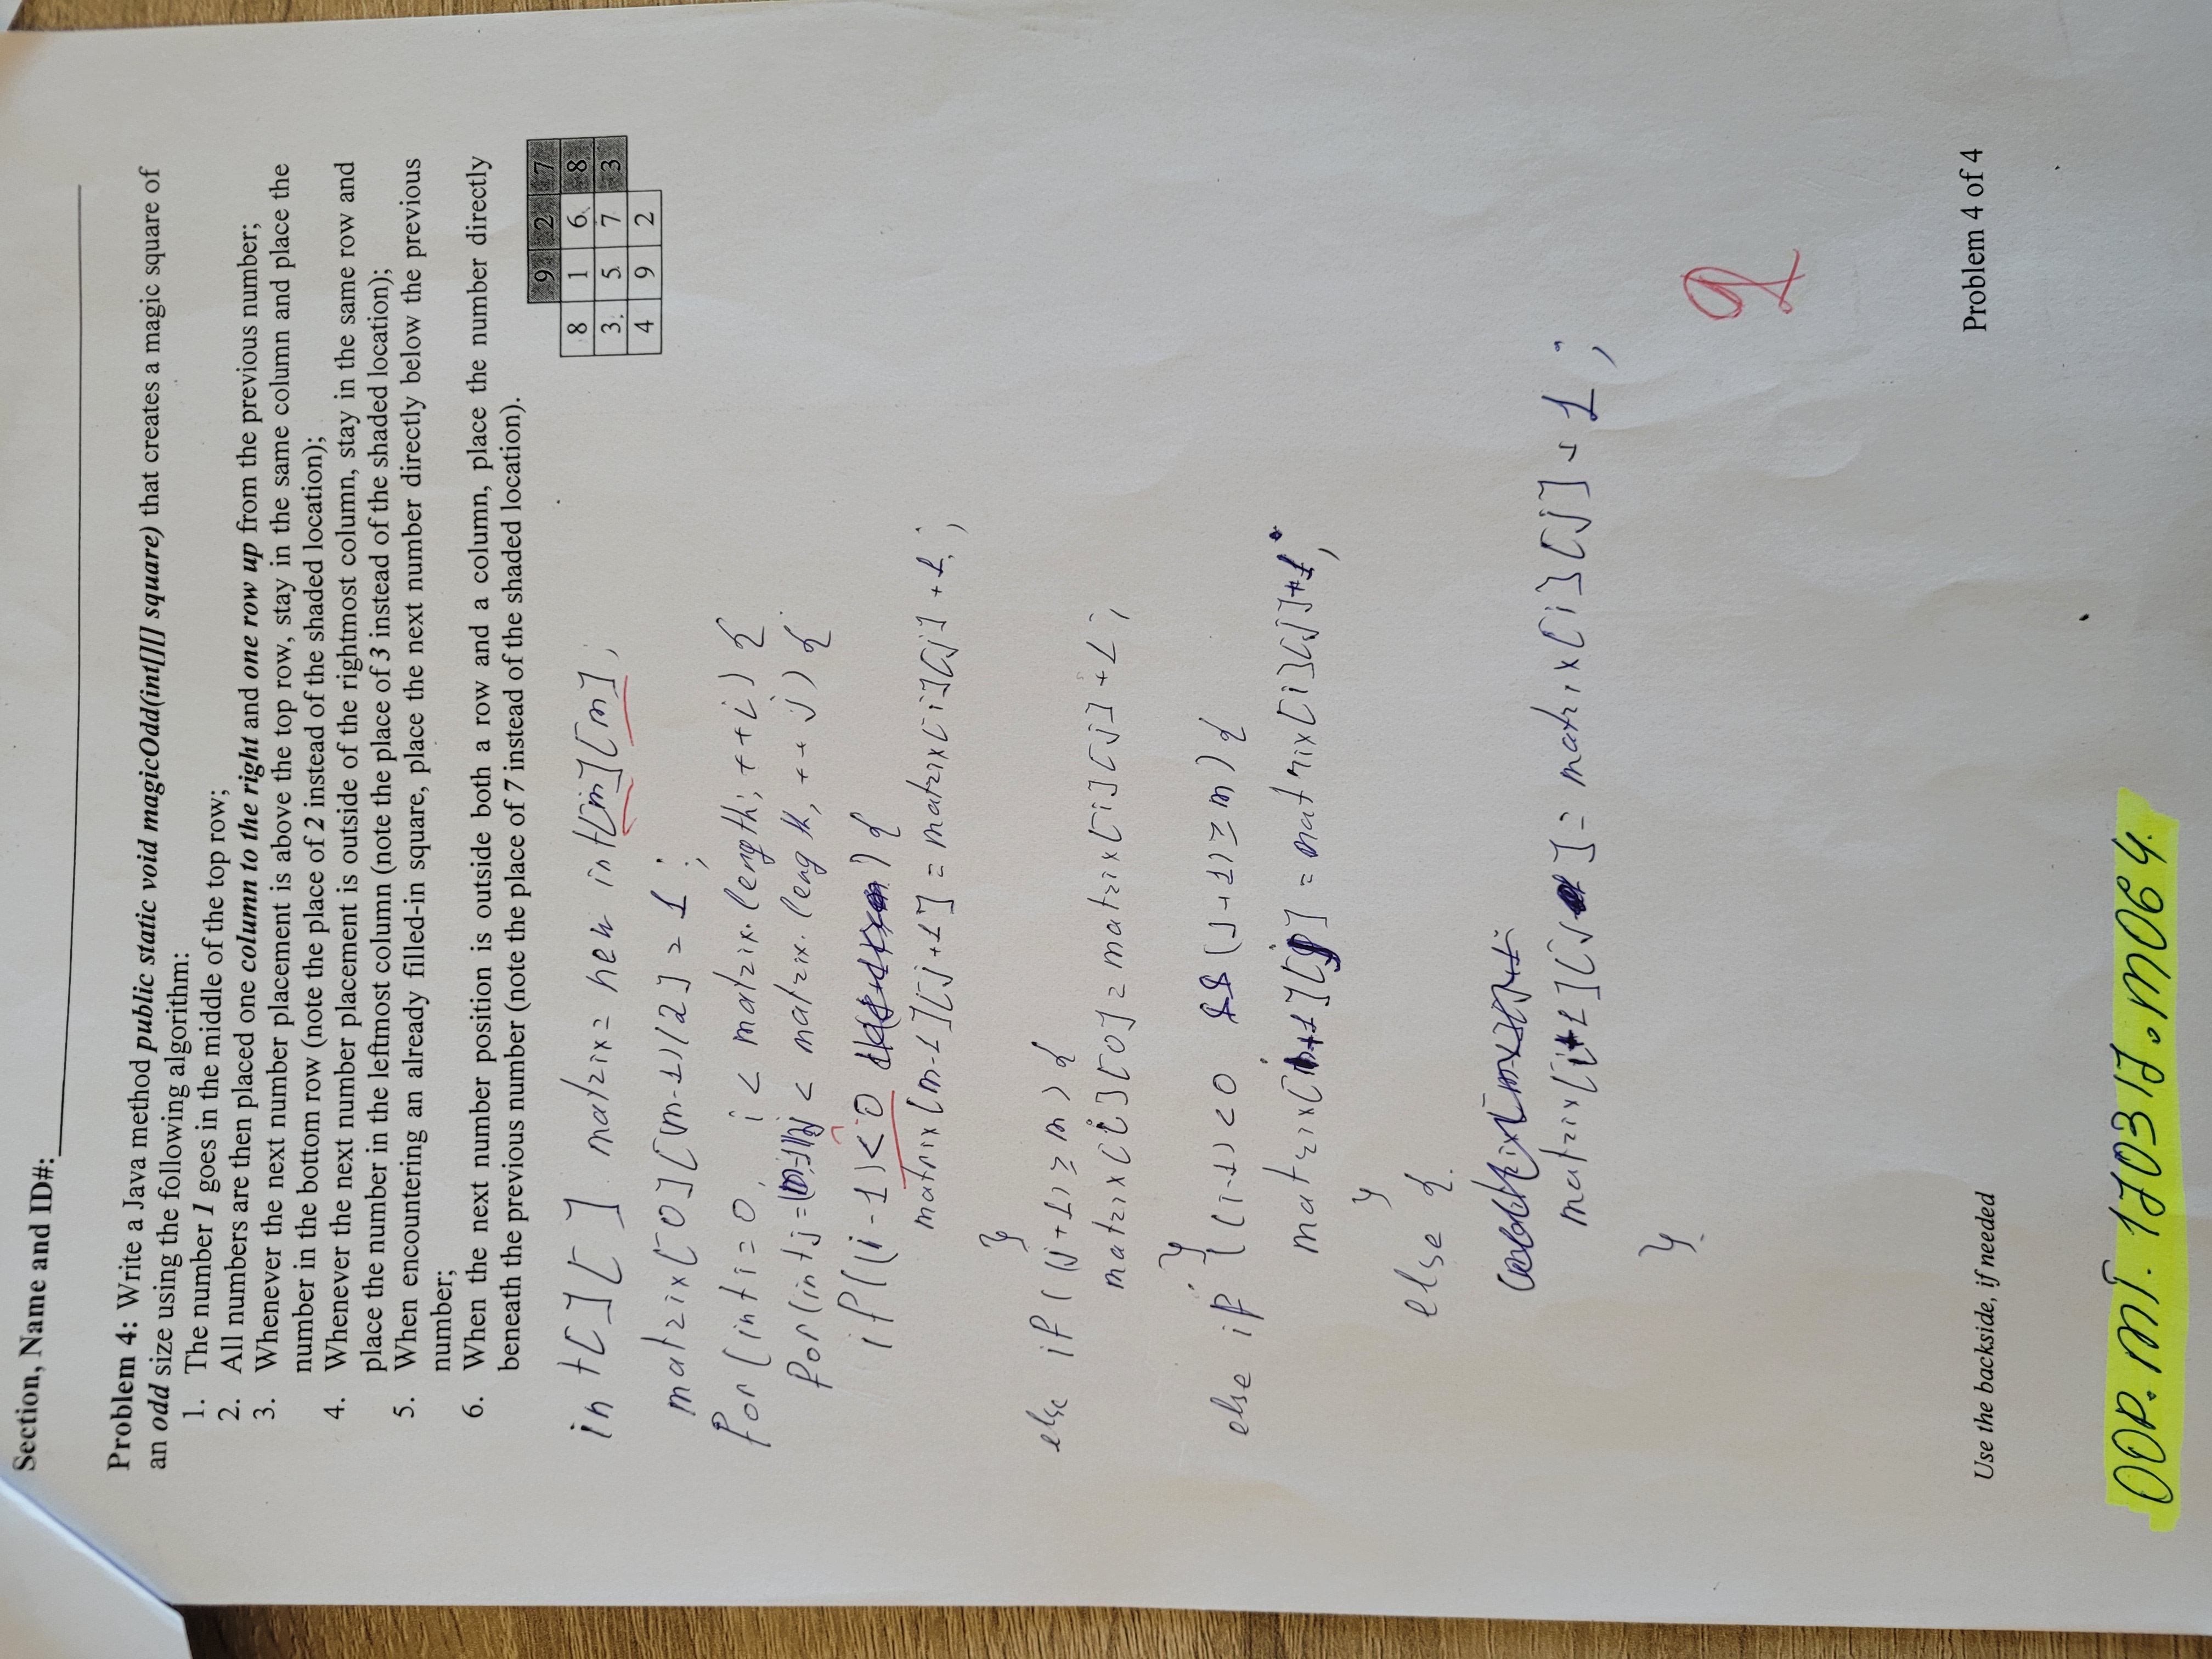 Section, Name and ID#:
Problem 4: Write a Java method public static void magicOdd(int[][] square) that creates a magic square of
an odd size using the following algorithm:
1. The number 1 goes in the middle of the top row;
2. All numbers are then placed one column to the right and one row up from the previous number;
3. Whenever the next number placement is above the top row, stay in the same column and place the
number in the bottom row (note the place of 2 instead of the shaded location);
4. Whenever the next number placement is outside of the rightmost column, stay in the same row and
place the number in the leftmost column (note the place of 3 instead of the shaded location);
5. When encountering an already filled-in square, place the next number directly below the previous
number;
6. When the next number position is outside both a row and a column, place the number directly
beneath the previous number (note the place of 7 instead of the shaded location).
9 2 7
8 1 6 8
3 5 7 3
4 9 2
int[][] matrix = new int[m][m];
matrix[0][(m-1)/2] = 1;
for (int i = 0, i < matrix.length; ++i) {
for (int j = j < matrix.length, ++j) {
if ((i-1)<0 ) {
matrix[m-1][j+1] = matrix[i][j] +1;
}
else if ((j+1) ≥ m) {
matrix[i][0] = matrix[i][j] +1;
}
else if ((i-1) < 0 && (j+1) ≥ m) {
matrix[i+1][j] = matrix[i][j]+1;
}
else {
matrix[i+1][j] = matrix[i][j] + 1;
}
2
Use the backside, if needed
Problem 4 of 4
OOP.MT.170317.M064.